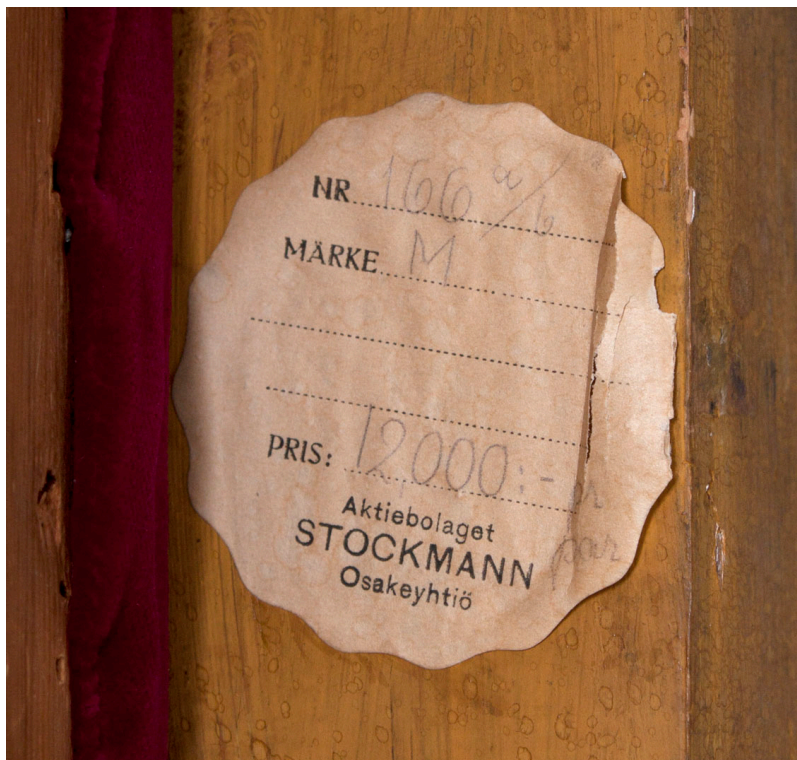 NR 166 a/b
MÄRKE M
PRIS: 12000:- pr
par
Aktiebolaget
STOCKMANN
Osakeyhtiö